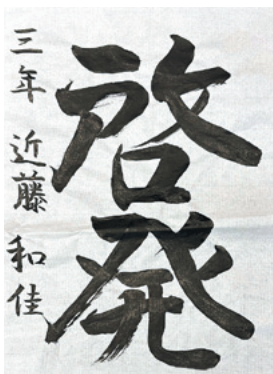 啓発
三年 近藤 和佳